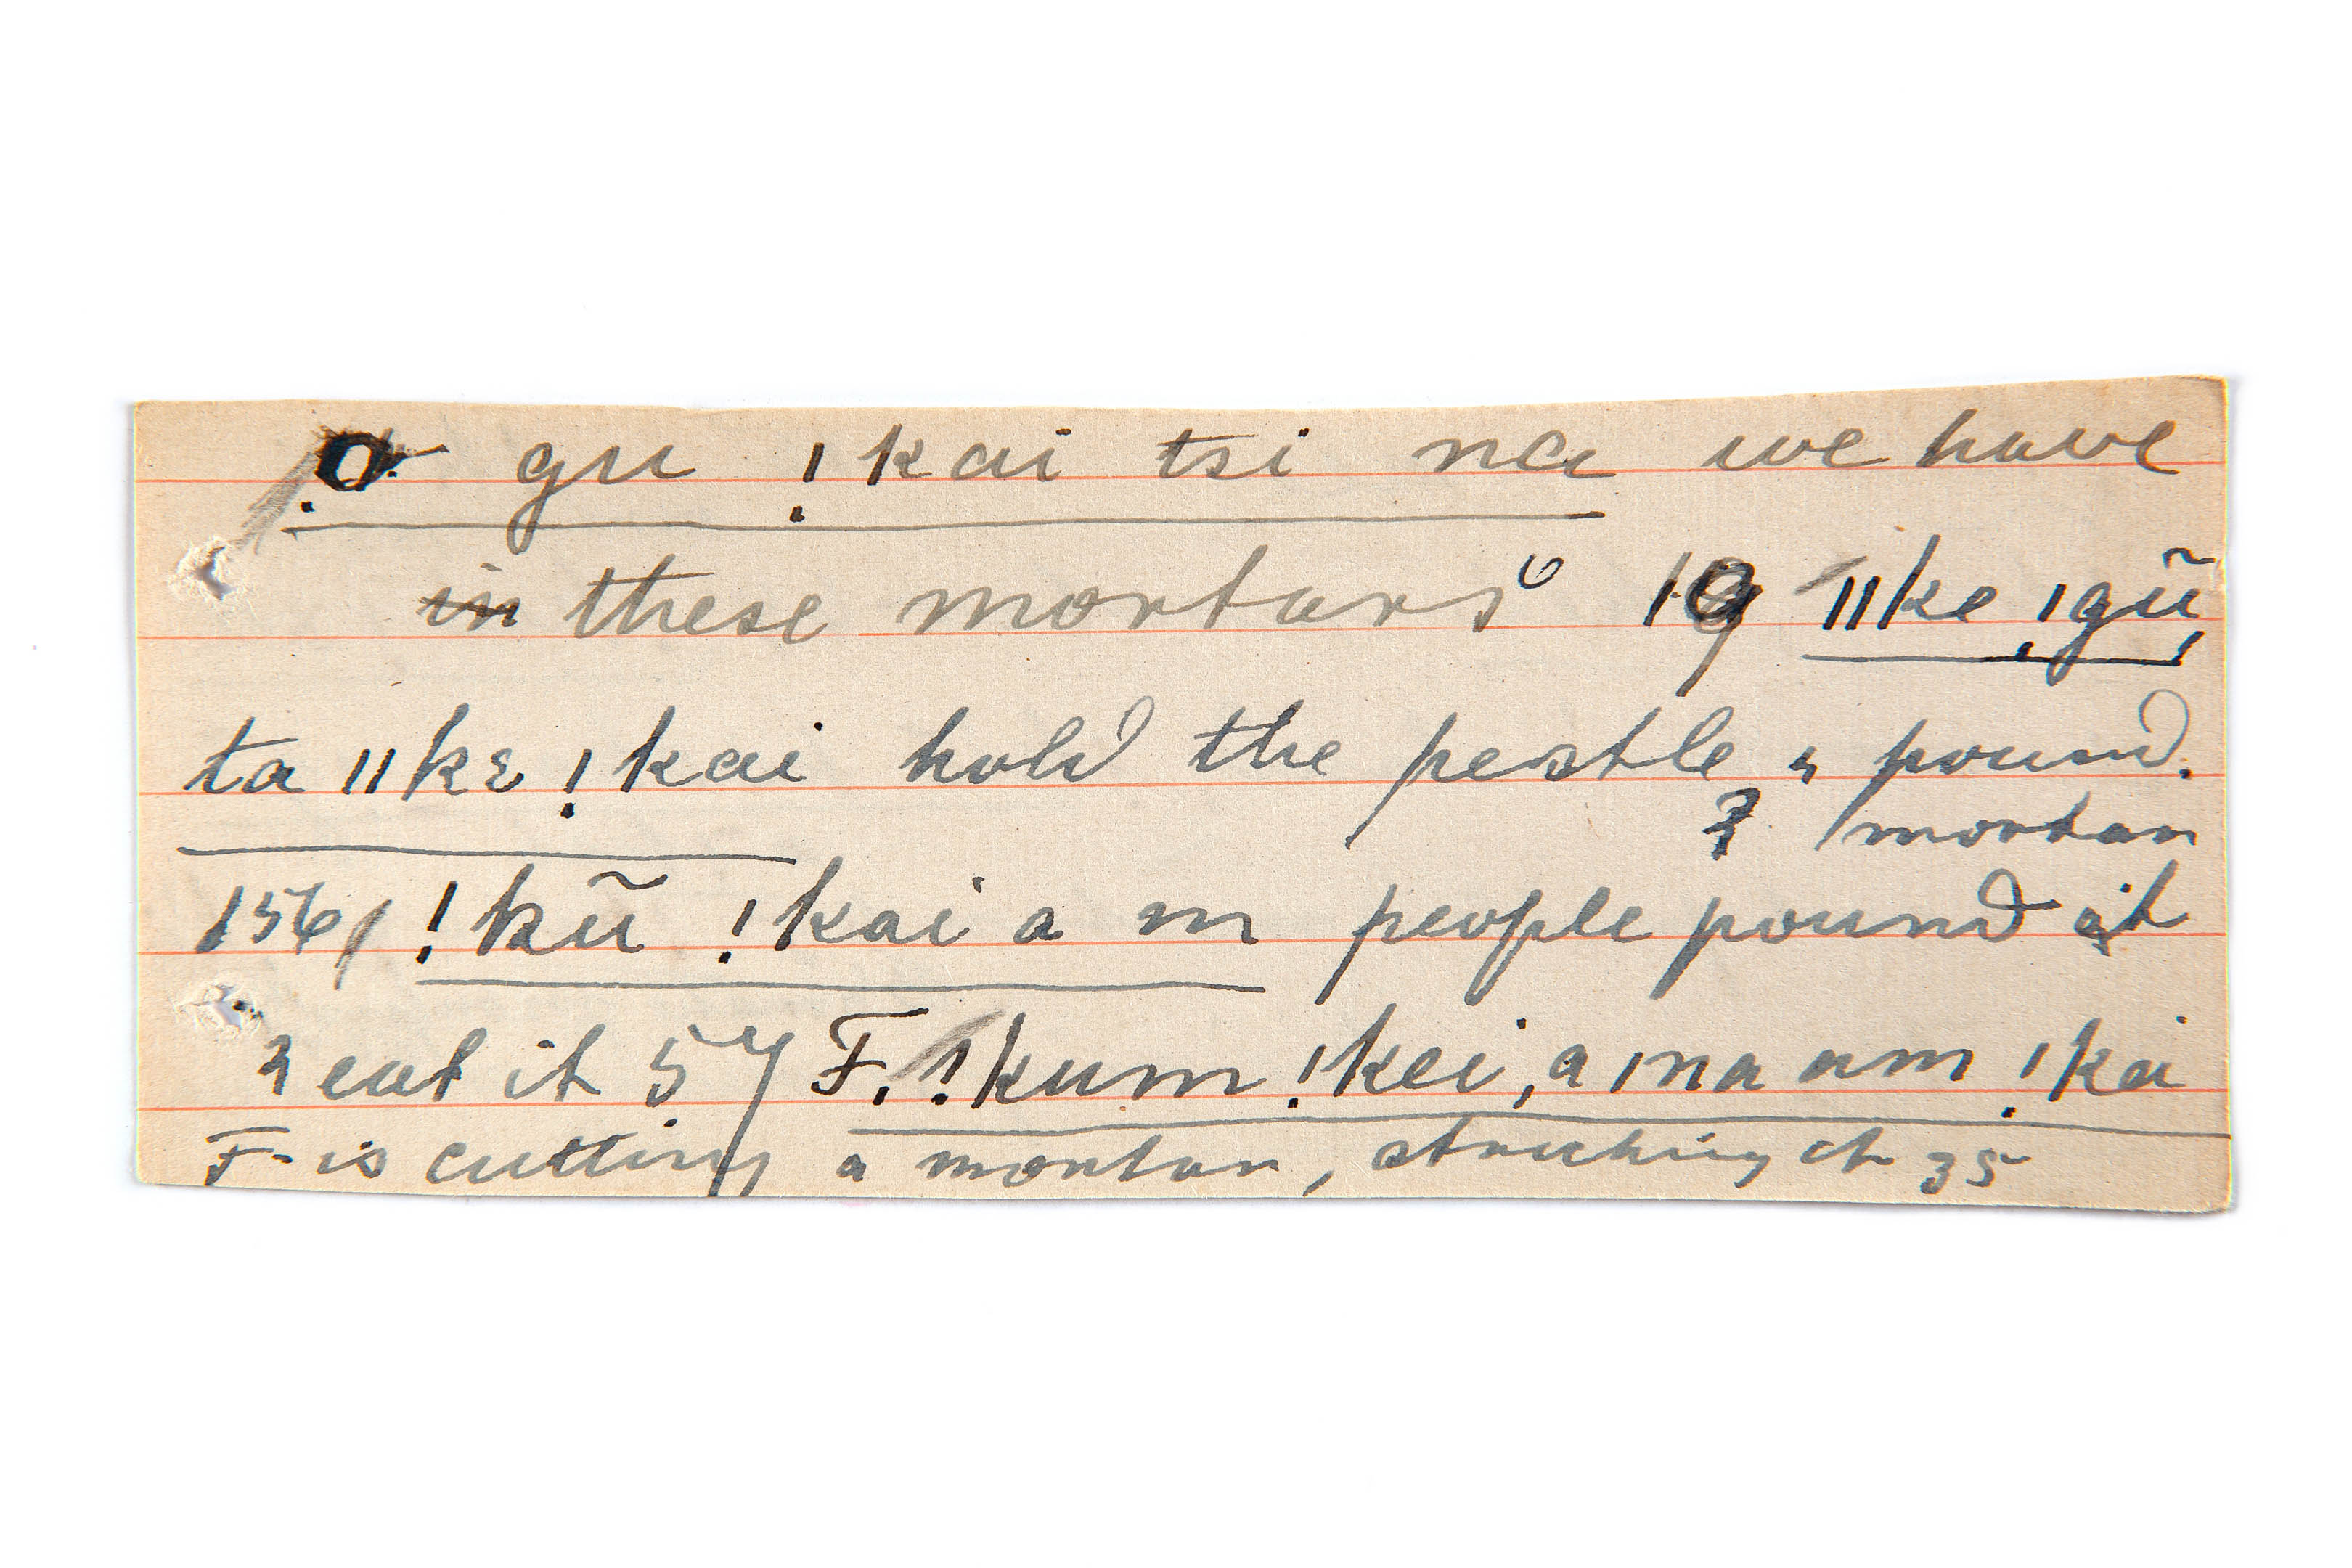 o gu ! kai tsi na we have
in these mortars 6 19 ǁke ǀgũ
ta ǁkɛ ! kai hold the pestle & pound.
& mortar
156 ! kũ ! kai a m people pound it
& eat it 5 y F. !kum !kei, a ǀna am !kai
F. is cutting a mortar, at 35